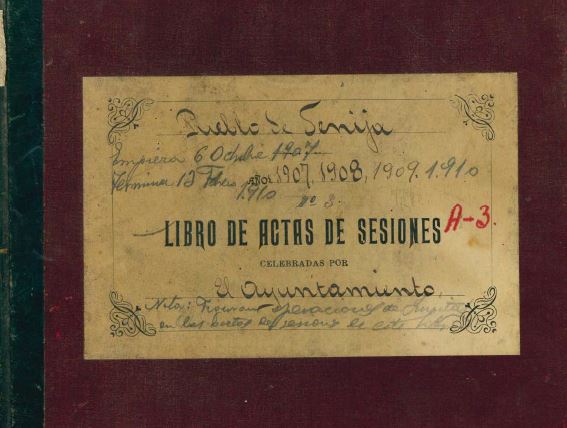 Pueblo de Senija
Empieza 6 Octubre 1907
Termina 13 Febrero AÑO 1907, 1908, 1909. 1.910
1.910
Nº 3.
LIBRO DE ACTAS DE SESIONES
A-3.
CELEBRADAS POR
El Ayuntamiento.
Nota: Figuran operaciones de
en las actas de sesiones de este